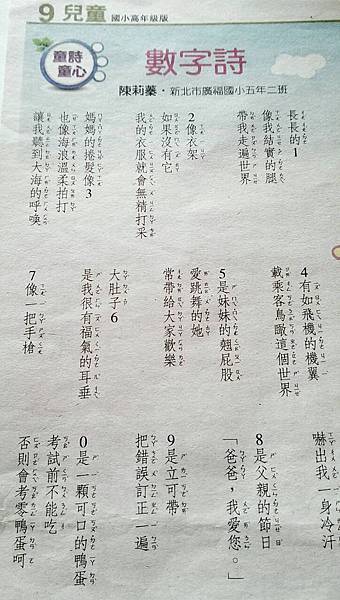 9 兒童 國小高年級版
童詩
童心
數字詩
陳莉蓁‧新北市廣福國小五年二班
長長的1
像我結實的腿
帶我走遍世界
2像衣架
如果沒有它
我的衣服就會無精打采
媽媽的捲髮像3
也像海浪溫柔拍打
讓我聽到大海的呼喚
4有如飛機的機翼
載乘客鳥瞰這個世界
5是妹妹的翹屁股
愛跳舞的她
常帶給大家歡樂
大肚子6
是我很有福氣的耳垂
7像一把手槍
嚇出我一身冷汗
8是父親的節日
「爸爸,我愛您。」
9是立可帶
把錯誤訂正一遍
0是一顆可口的鴨蛋
考試前不能吃
否則會考零鴨蛋呵